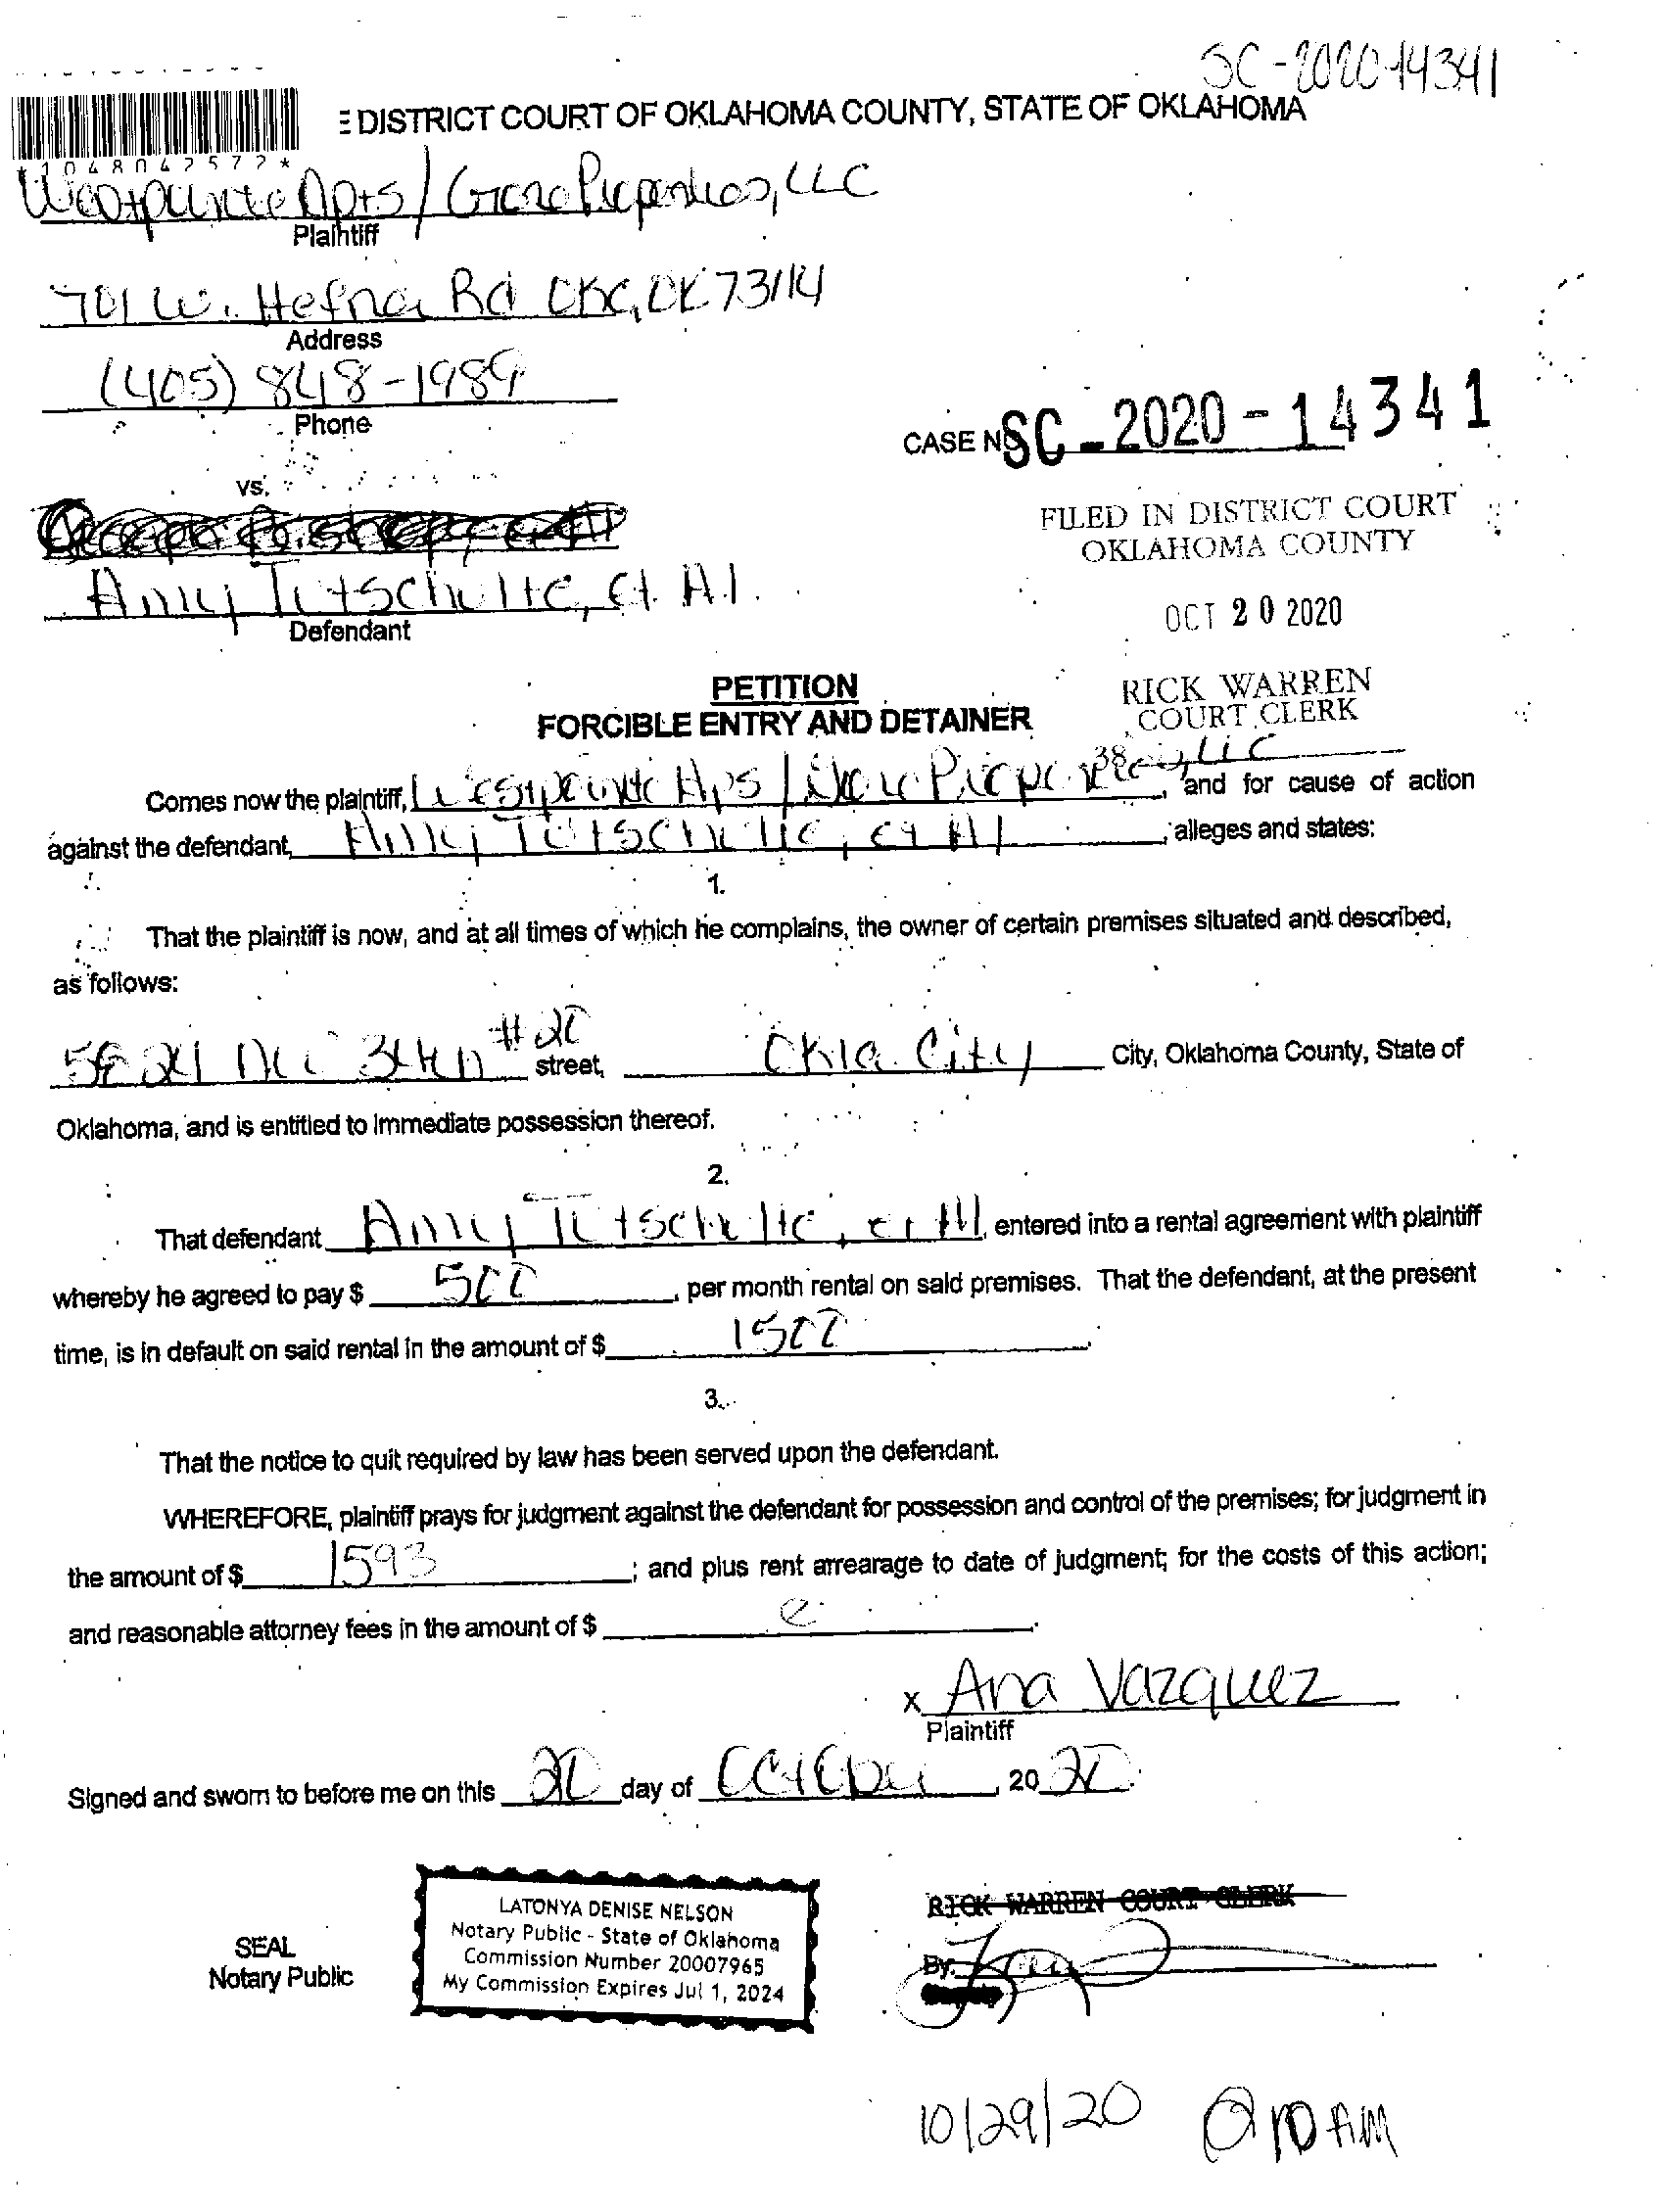 SC-2020-14341
E DISTRICT COURT OF OKLAHOMA COUNTY, STATE OF OKLAHOMA
*1048042572*
Westpointe Apts / Properties, LLC
Plaintiff
701 W. Hefner Rd OKC, OK 73114
Address
(405) 848-1989
Phone
CASE NO SC - 2020 - 14341
vs.
FILED IN DISTRICT COURT
OKLAHOMA COUNTY
Amy Tutschulte, et Al.
Defendant
OCT 20 2020
PETITION
FORCIBLE ENTRY AND DETAINER
RICK WARREN
COURT CLERK
38
Comes now the plaintiff, Westpointe Apts / Properties, LLC, and for cause of action
against the defendant, Amy Tutschulte, et Al, alleges and states:
1.
That the plaintiff is now, and at all times of which he complains, the owner of certain premises situated and described,
as follows:
34th #20 street, Okla. City City, Oklahoma County, State of
Oklahoma, and is entitled to immediate possession thereof.
2.
That defendant Amy Tutschulte, et Al, entered into a rental agreement with plaintiff
whereby he agreed to pay $ 500, per month rental on said premises. That the defendant, at the present
time, is in default on said rental in the amount of $ 1500.
3.
That the notice to quit required by law has been served upon the defendant.
WHEREFORE, plaintiff prays for judgment against the defendant for possession and control of the premises; for judgment in
the amount of $ 1593; and plus rent arrearage to date of judgment; for the costs of this action;
and reasonable attorney fees in the amount of $.
x Ana Vazquez
Plaintiff
Signed and sworn to before me on this 20 day of October, 20 20.
SEAL
Notary Public
LATONYA DENISE NELSON
Notary Public - State of Oklahoma
Commission Number 20007965
My Commission Expires Jul 1, 2024
RICK WARREN COURT CLERK
By:
Deputy
10/29/20 @ 10 AM